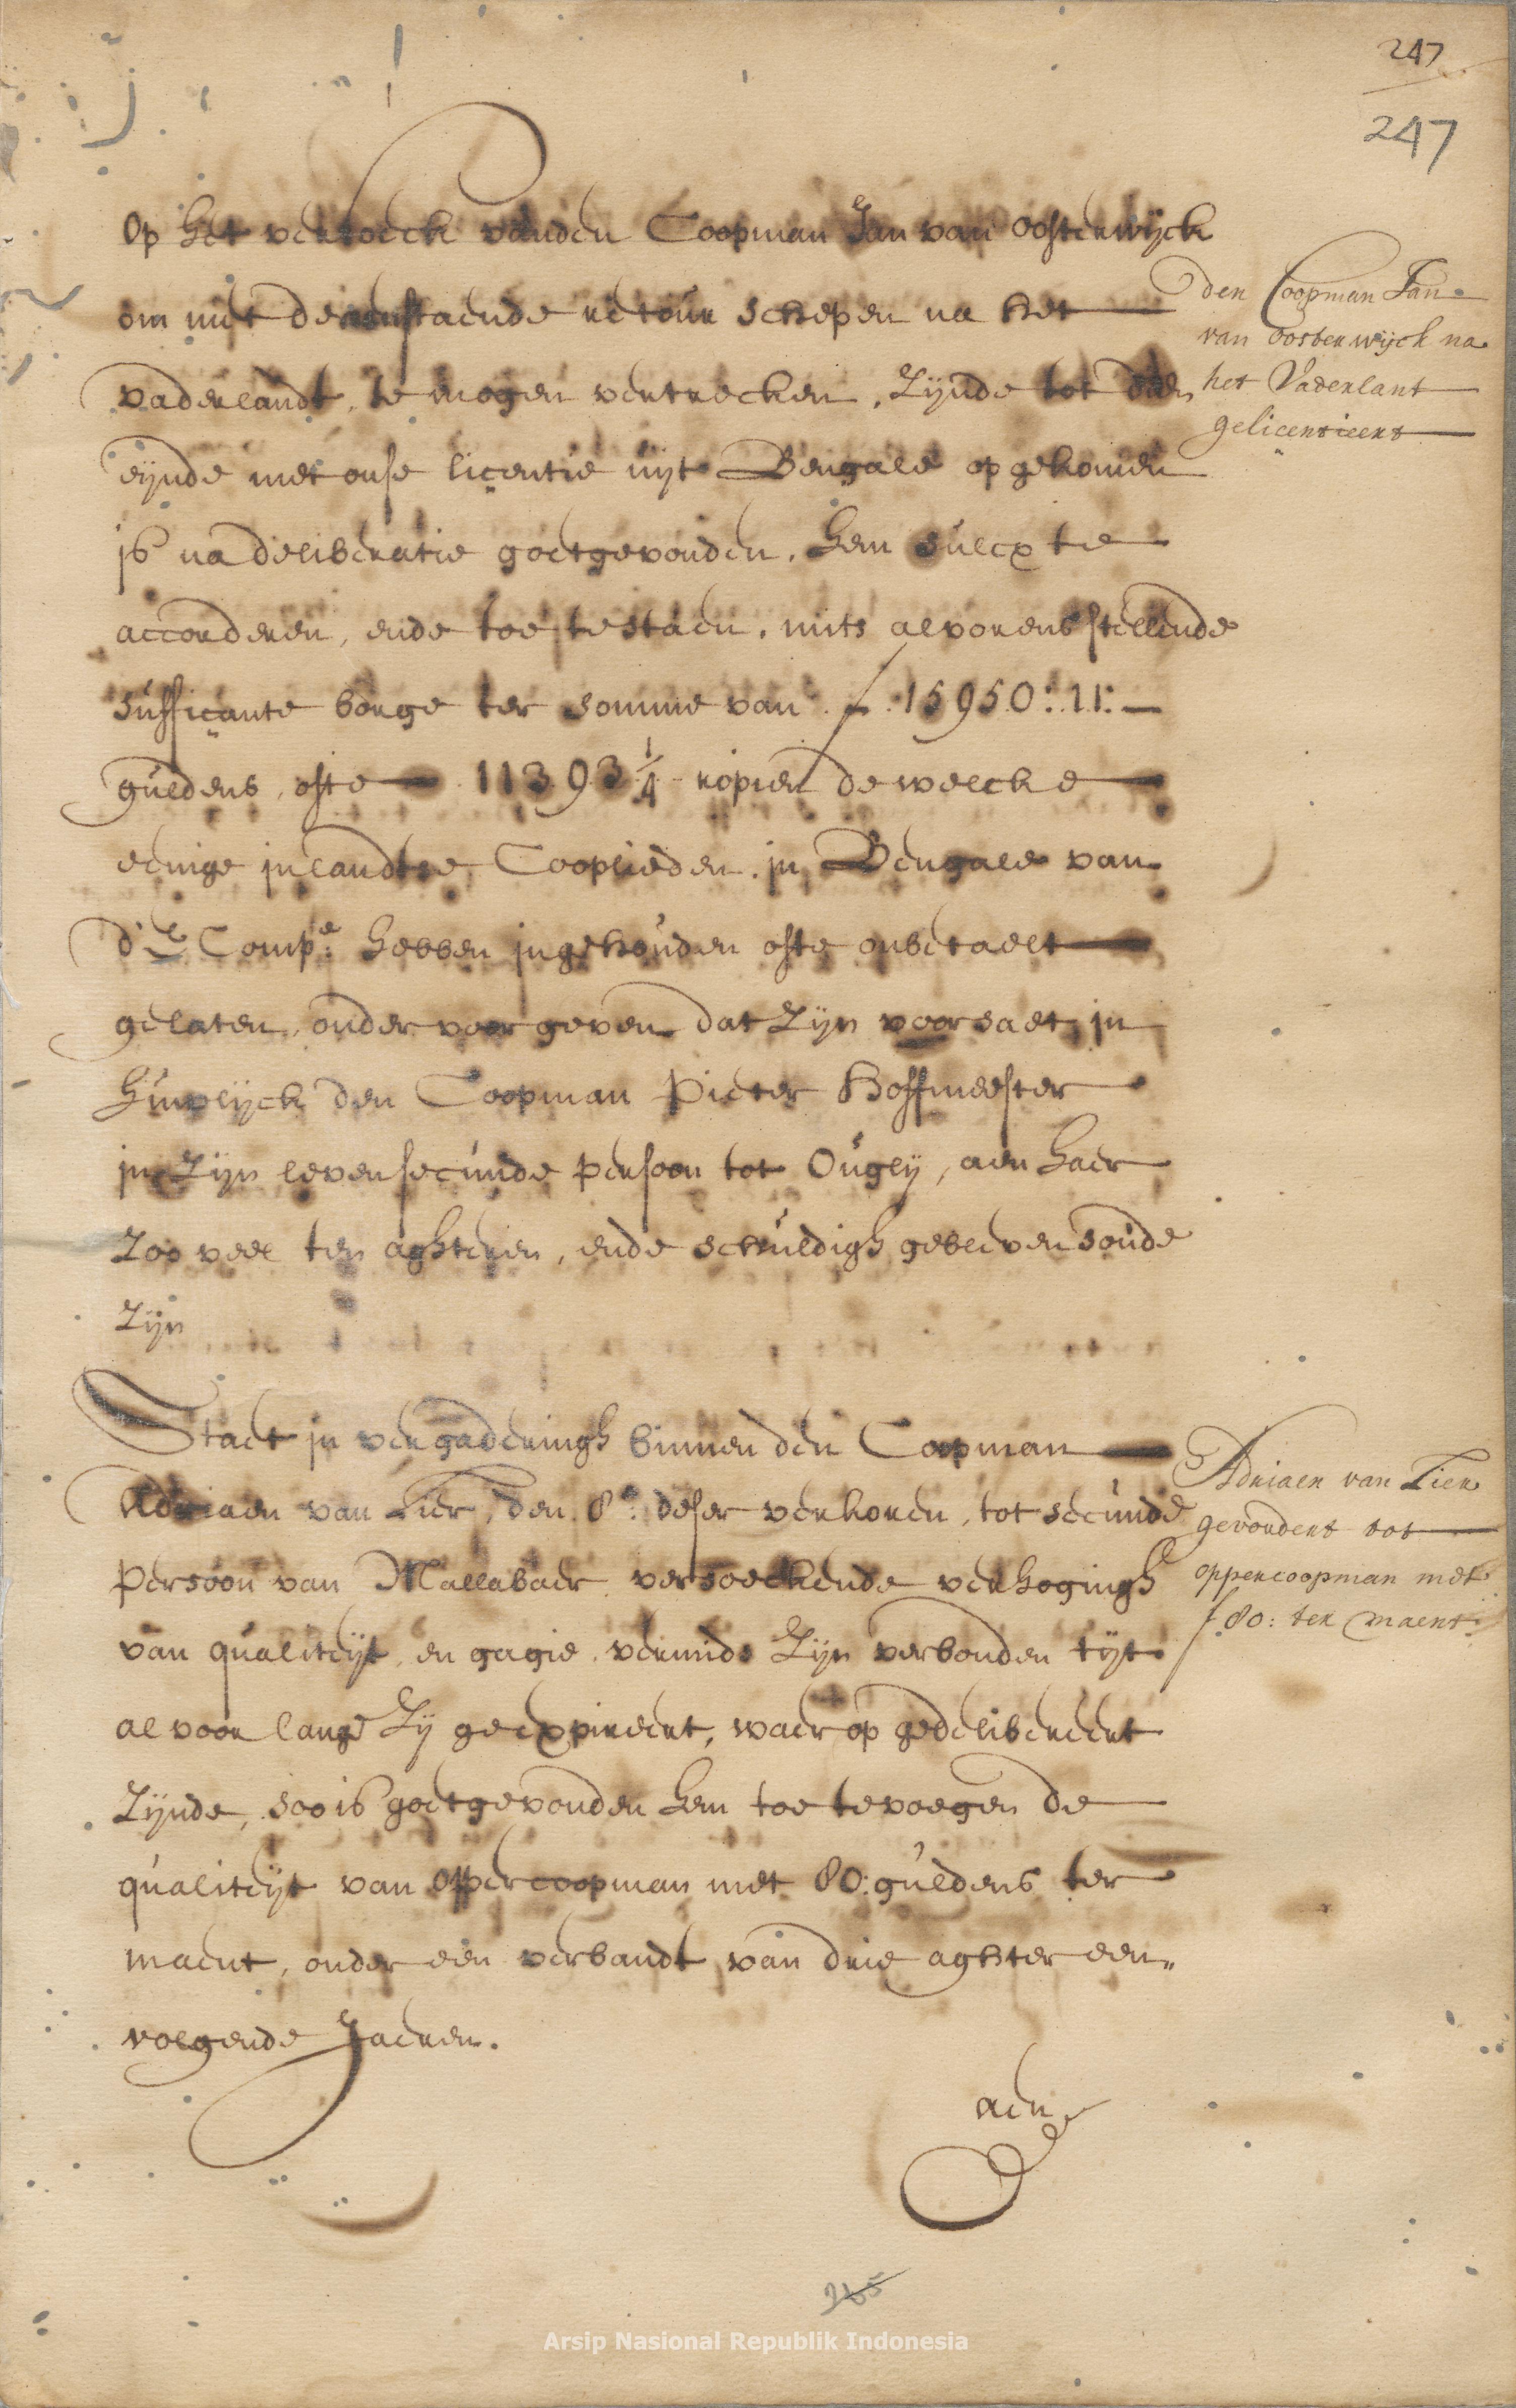 247
247
Op het versoeck vanden Coopman Jan van oosterwijck
om met de aenstaende retour schepen na het
vaderlandt, te mogen vertrecken, Zijnde tot dien
eijnde met onse licentie uijt Bengale opgekomen
is na deliberatie goetgevonden, hem sulcx te
accorderen, ende toe te staen, mits alvorens stellende
sufficante borge ter somme van f 15950:11:—
guldens, ofte 11393 1/4 ropien de welcke
eenige inlandtse Cooplieden in Bengale van
d'E Compe: hebben ingehouden ofte onbetaelt
gelaten, onder voorgeven dat Zijn voorsaet in
huwlijck den Coopman Pieter Hoffmeester
in Zijn leven secunde persoon tot Ougly, aen haer
Zoo veel ten aghteren, ende schuldigh gebleven soude
Zijn
den Coopman Jan
van oosterwijck na
het Vaderlant
gelicentieert
Staet in vergaderingh binnen den Coopman
Adriaen van Lier, den 8e: deser verkoren, tot secunde
persoon van Mallabaer versoeckende verhogingh
van qualiteijt, en gagie, vermids Zijn verbonden tijt
al voor lange Zij geexpireert, waer op gedelibereert
Zijnde, soo is goetgevonden hem toe te voegen de
qualiteijt van oppercoopman met 80: guldens ter
maent, onder een verbandt van drie aghter een„
volgende Jaeren.
Adriaen van Lier
gevordert tot
oppercoopman met
f 80: ter maent
aen
Arsip Nasional Republik Indonesia